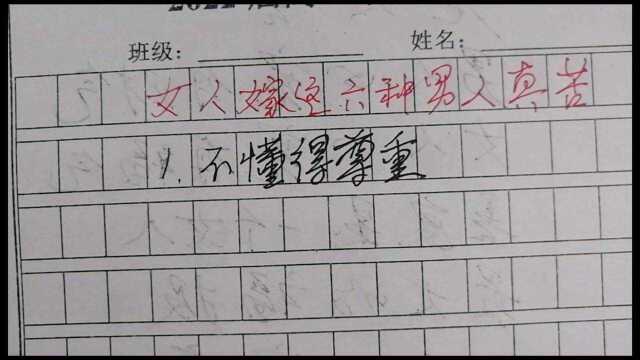 班级：
姓名：
女人嫁这六种男人真苦
1.不懂得尊重